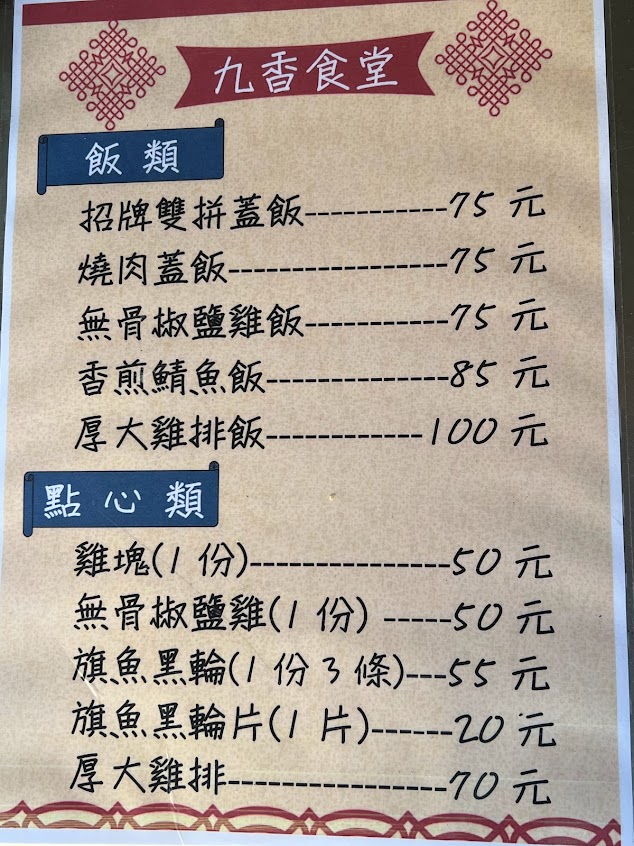 九香食堂
飯類
招牌雙拼蓋飯-----------75 元
燒肉蓋飯-----------------75 元
無骨椒鹽雞飯-----------75 元
香煎鯖魚飯--------------85 元
厚大雞排飯------------100 元
點心類
雞塊(1 份)---------------50 元
無骨椒鹽雞(1 份) -----50 元
旗魚黑輪(1 份 3 條)---55 元
旗魚黑輪片(1 片)------20 元
厚大雞排-----------------70 元